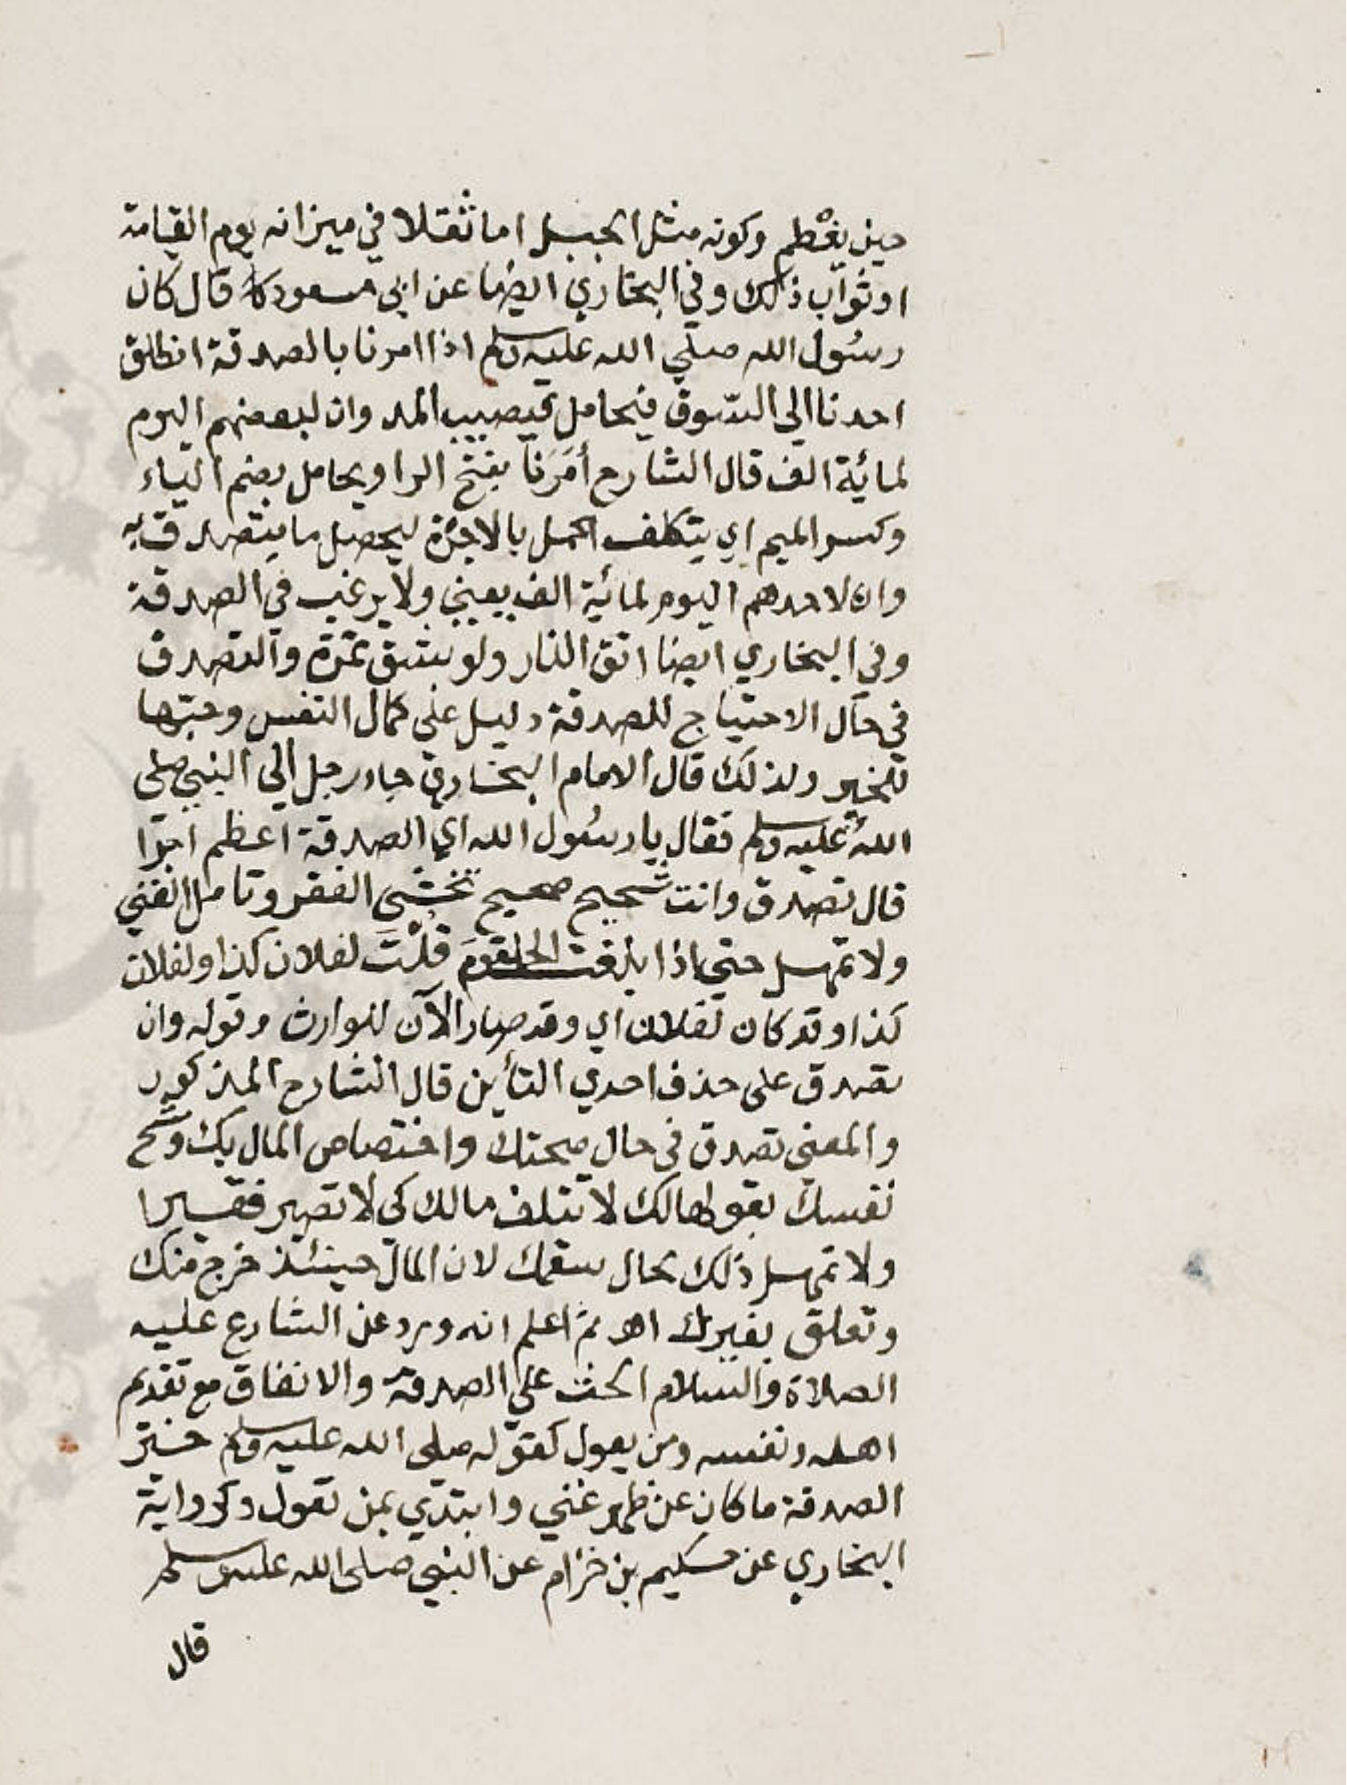 حين يعْظم وكونه مثل الجبل اما ثقلا في ميزانه يوم القيامة
او ثواب ذلك وفي البخاري ايضا عن ابي مسعود قال كان
رسُول الله صلي الله عليه وسلم اذا امرنا بالصدقة انطلق
احدنا الي السّوق فيحامل فيصيب المد وان لبعضهم اليوم
لمائة الف قال الشارح أمَرَنا بفتح الرا ويحامل بضم الياء
وكسر الميم اي يتكلف الحمل بالاجرة ليحصل ما يتصدق به
وان لاحدهم اليوم لمائة الف يعني ولا يرغب في الصدقة
وفي البخاري ايضا اتق النار ولو بشق تمرة والتصدق
في حال الاحتياج للصدقة دليل علي كمال النفس وحبّها
للخير ولذلك قال الامام البخاري جاء رجل الي النبي صلي
اللهُ عليه وسلم فقال يا رسُول الله اي الصدقة اعظم اجرا
قال تصدق وانت شحيح صحيح تخشي الفقر وتامل الغني
ولا تمهل حتي اذا بلغت الحلقومَ قلْتَ لفلان كذا ولفلان
كذا وقد كان لفلان اي وقد صار الآن للوارث وقوله وان
تصدق علي حذف احدي التأين قال الشارح المذكور
والمعني تصدق في حال صحتك واختصاص المال بك وشح
نفسك بقولها لك لا تتلف مالك كي لا تصير فقيرا
ولا تمهل ذلك بحال سقمك لان المال حينئذ خرج منك
وتعلق بغيرك اهـ ثم اعلم انه ورد عن الشارع عليه
الصلاة والسّلام الحث علي الصدقة والانفاق مع تقديم
اهله ونفسه ومن يعول كقوله صلي الله عليه وسلم خير
الصدقة ما كان عن ظهر غني وابتدي بمن تعول وكرواية
البخاري عن حكيم بن خزام عن النبي صلي الله عليه وسلم
قال